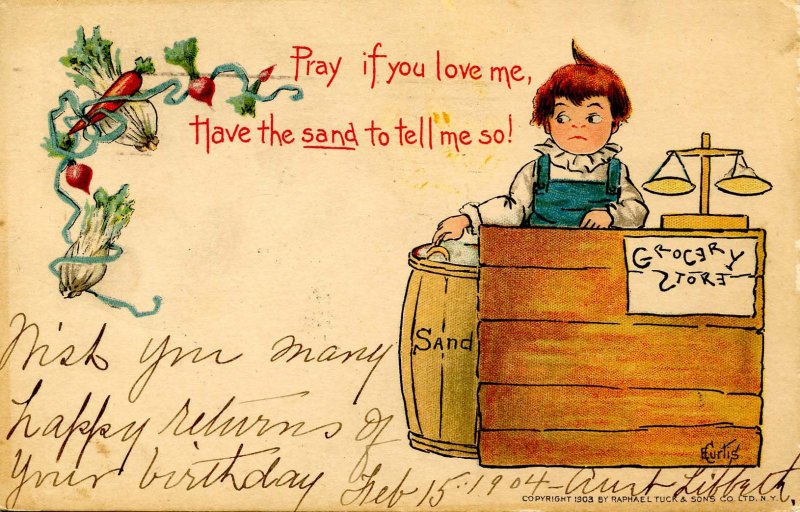 Pray if you love me,
Have the sand to tell me so!
GROCERY
STORE
SAND
ECurtis
Wish you many
happy returns of
Your birthday Feb 15. 1904 - Aunt Libbeth.
COPYRIGHT 1903 BY RAPHAEL TUCK & SONS CO LTD. N.Y.